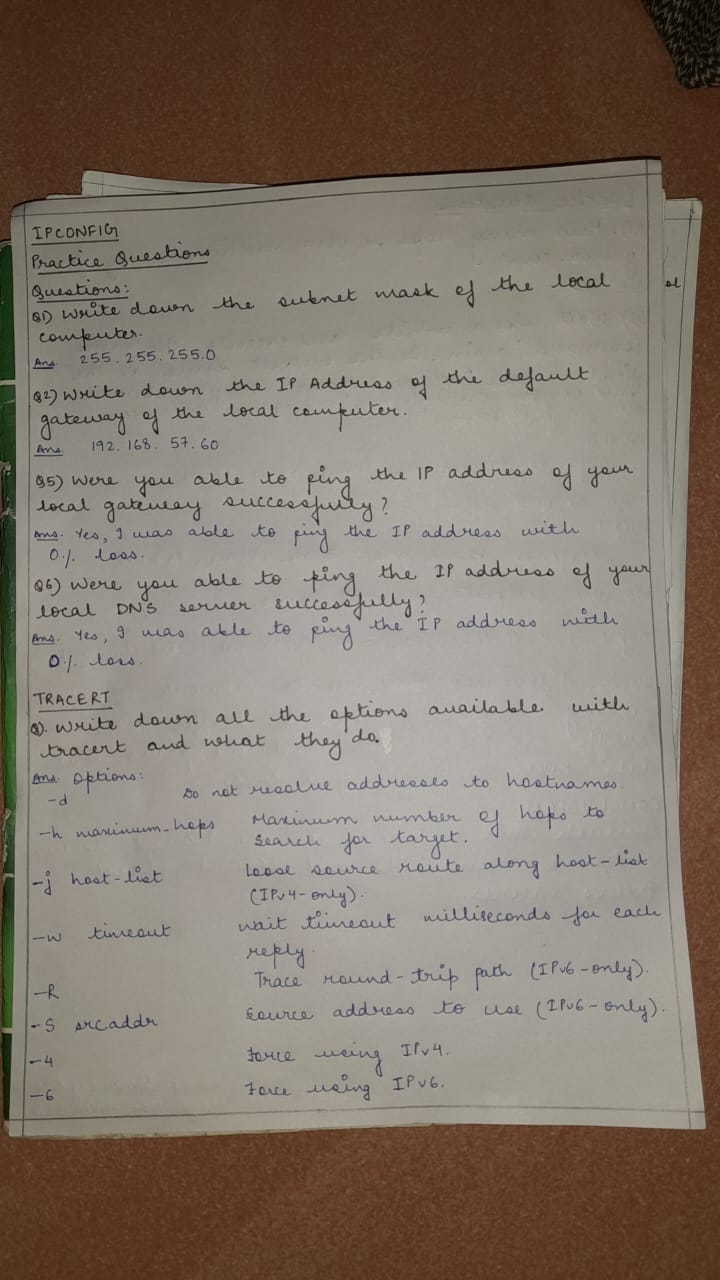 IPCONFIG
Practice Questions
Questions:
Q1) Write down the subnet mask of the local
computer.
Ans. 255.255.255.0
Q2) Write down the IP Address of the default
gateway of the local computer.
Ans. 192.168.57.60
Q5) Were you able to ping the IP address of your
local gateway successfully?
Ans. Yes, I was able to ping the IP address with
0% loss.
Q6) Were you able to ping the IP address of your
local DNS server successfully?
Ans. Yes, I was able to ping the IP address with
0% loss.
TRACERT
Q). Write down all the options available with
tracert and what they do.
Ans. Options:
-d Do not resolve addresses to hostnames.
-h maximum-hops Maximum number of hops to
search for target.
-j host-list Loose source route along host-list
(IPv4-only).
-w timeout wait timeout milliseconds for each
reply.
-R Trace round-trip path (IPv6-only).
-S srcaddr Source address to use (IPv6-only).
-4 Force using IPv4.
-6 Force using IPv6.